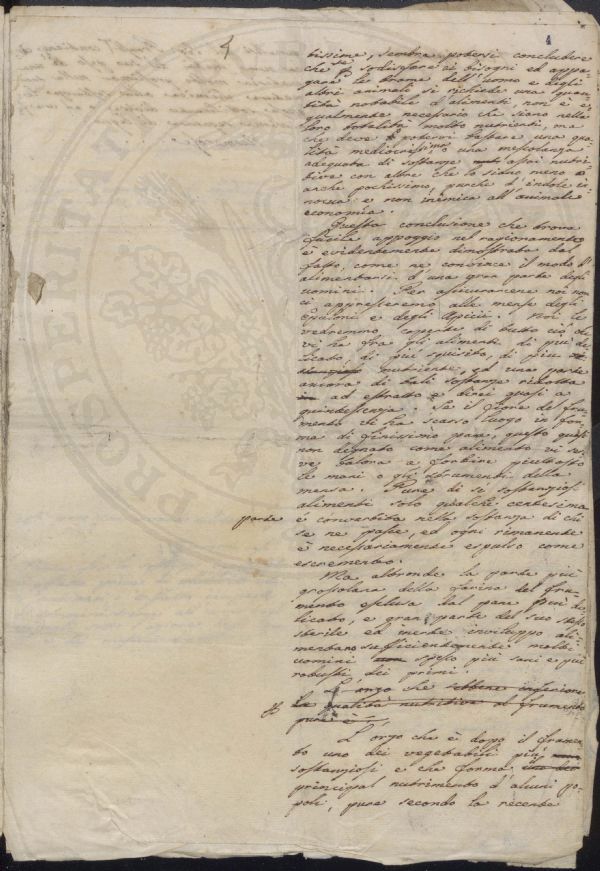 4
bissime, sembra potersi concludere
che se a sodisfare ai bisogni ed appa-
gare le brame dell'uomo e degli
altri animali si richiede una quan-
tità notabile d'alimenti, non è e-
gualmente necessario che siano nella
loro totalità molto nutrienti, ma
che deve potervi bastare una qua-
lità mediocrissima una mescolanza
adequata di sostanze assai nutri-
tive con altre che lo siano meno o
anche pochissimo, purché d'indole in-
nocua e non inimica all'animale
economia.
Questa conclusione che trova
facile appoggio nel ragionamento
è evidentemente dimostrata dal
fatto, come ne convince il modo d'
alimentarsi d'una gran parte degli
uomini. Per assicurarcene noi non
ci appresteremo alle mense degli
Epuloni e degli Apicii. Noi le
vedremmo coperte di tutto ciò che
vi ha fra gli alimenti di più de-
licato, di più squisito, di più
nutriente, ed una parte
ancora di tali sostanze ridotta
ad estratto e direi quasi a
quintessenza. Se il fiore del fru-
mento vi ha scarso luogo in for-
ma di finissimo pane, questo quasi
non degnato come alimento vi ser-
ve talora a forbire piuttosto
le mani o gli strumenti della
mensa. Pure di sì sostanziosi
alimenti solo qualche centesima
parte
è convertita nella sostanza di chi
se ne pasce, ed ogni rimanente
è necessariamente espulso come
escremento.
Ma altronde la parte più
grossolana della farina del fru-
mento esclusa dal pane più de-
licato, e gran parte del suo stesso
sterile ed inerte inviluppo ali-
mentano sufficientemente molti
uomini spesso più sani e più
robusti dei primi.
L'orzo che sebbene inferiore
la qualità nutritiva al frumento
pure è
L'orzo che è dopo il frumen-
to uno dei vegetabili più
sostanziosi e che forma
principal nutrimento d'alcuni po-
poli, pure secondo la recente